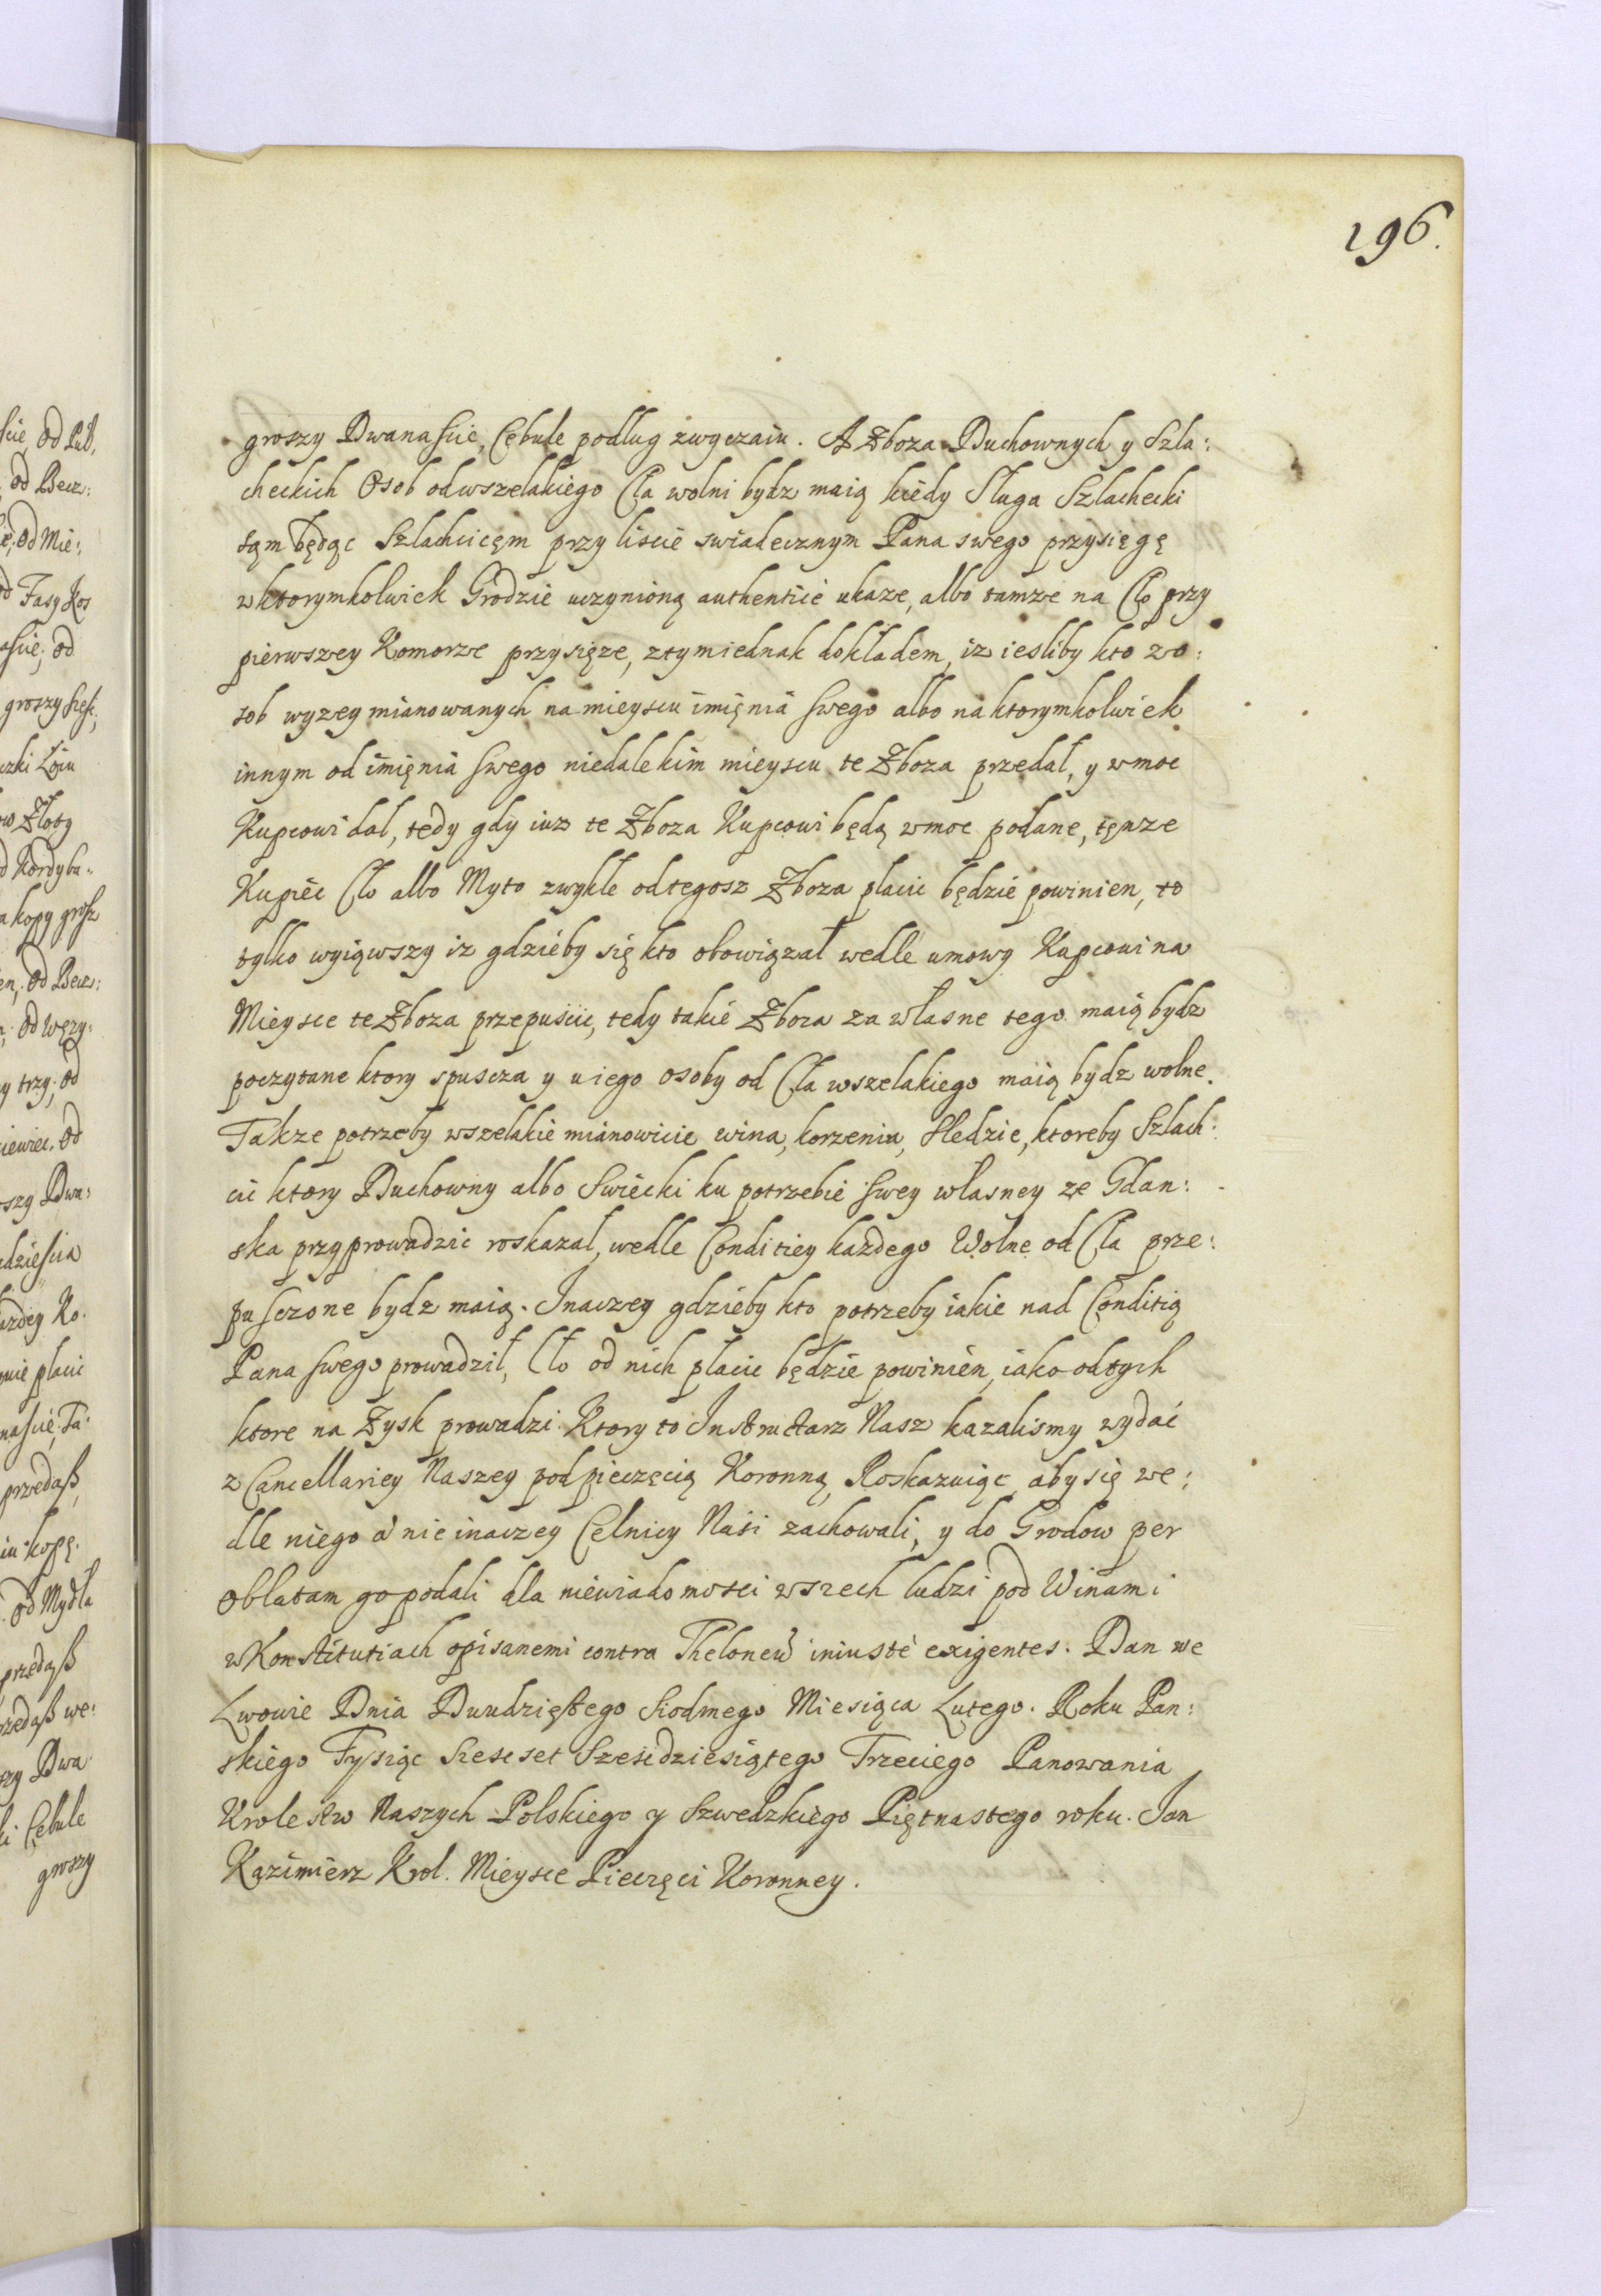 196.
groszy Dwanaście, Cębule podług zwyczaiu. A Zboza Duchownych y Szla:
checkich Osob odwszelakiego Cła wolni bydz maią kiedy Sługa Szlachecki
tąm będąc Szlachcicęm przy liscie swiadecznym Pana swego przysięgę
wktorymkolwiek Grodzie uczynioną authenticè ukaze, albo tamze na Cło przy
pierwszey Komorze przysięze, ztym iednak dokładem, iz iesliby kto zo:
sob wyzey mianowanych na mieyscu imięnia swego albo na ktorymkolwiek
innym od imięnia swego niedalekim mieyscu te Zboza przedał, y wmoc
Kupcowi dał, tedy gdy iuz te Zboza Kupcowi będą wmoc podane, tęmze
Kupiec Cło albo Myto zwykłe odtegosz Zboza płacic będzie powinien, to
tylko wyiąwszy iz gdzieby się kto obowiązał wedle umowy Kupcowi na
Mieysce te Zboza przepuscic, tedy takie Zboza za własne tego maią bydz
poczytane ktory spuscza y u iego osoby od Cła wszelakiego maią bydz wolne.
Takze potrzeby wszelakie mianowicie wina, korzenia, sledzie, ktoreby Szlach:
cic ktory Duchowny albo Swiecki ku potrzebie swey własney ze Gdan:
ska przyprowadzic roskazał, wedle Conditiey kazdego Wolne od Cła prze:
pusczone bydz maią. Inaczey gdzieby kto potrzeby iakie nad Conditią
Pana swego prowadził, Cło od nich płacic będzie powinien, iako odtych
ktore na Zysk prowadzi. Ktory to Instructarz Nasz kazalismy wydać
z Cancellariey Naszey pod pieczęcią Koronną, Roskazuiąc, aby się we:
dle niego a nie inaczey Celnicy Nasi zachowali, y do Grodow per
oblatam go podali dla niewiadomosci wszech ludzi pod Winami
wKonstitutiach opisanemi contra Theloneu iniustè exigentes. Dan we
Lwowie Dnia Dwudziestego Siodmego Miesiąca Lutego. Roku Pan:
skiego Tysiąc Szescset Szescdziesiątego Trzeciego Panowania
Krolestw Naszych Polskiego y Szwedzkiego Piętnastego roku. Jan
Kazimierz Krol. Mieysce Pieczęci Koronney.